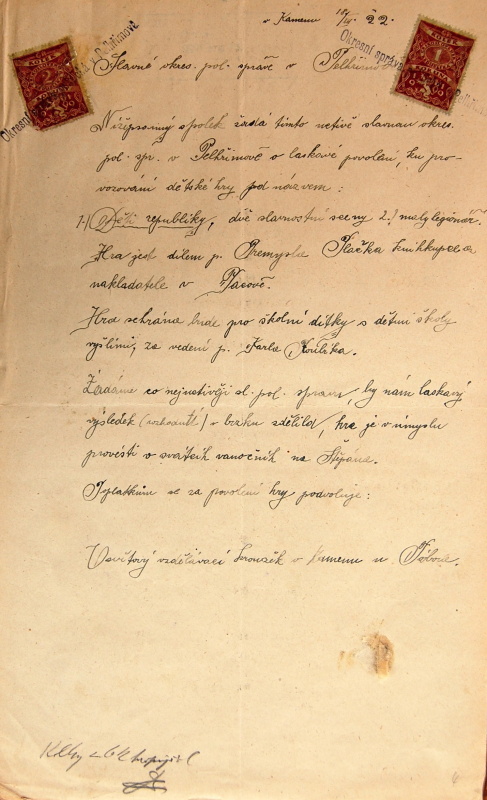 v Kamenu 18/IV. 22.
Okresní správa v Pelhřimově
Okresní správa
KOLEK
2
1919
KOLEK
1919
Slavné okres. pol. správě v Pelhřimově
Nížepsaný spolek žádá tímto uctivě slavnou okres.
pol. spr. v Pelhřimově o laskavé povolení, ku pro-
vozování dětské hry pod názvem:
1.) Děti republiky, dvě slavnostní sceny 2.) malý legionář.
Hra jest dílem p. Přemysla Plačka knihkupce a
nakladatele v Pacově.
Hra sehrána bude pro školní dítky s dětmi školy
vyšlými, za vedení p. Karla
Žádáme co nejuctivěji sl. pol. správu, by nám laskavý
výsledek (rozhodnutí) v brzku sdělila, hra je v úmyslu
provésti o svátcích vánočních na Štěpána.
Poplatkům se za povolení hry podvoluje:
Osvětový vzdělávací kroužek v Kamenu u Tábora.